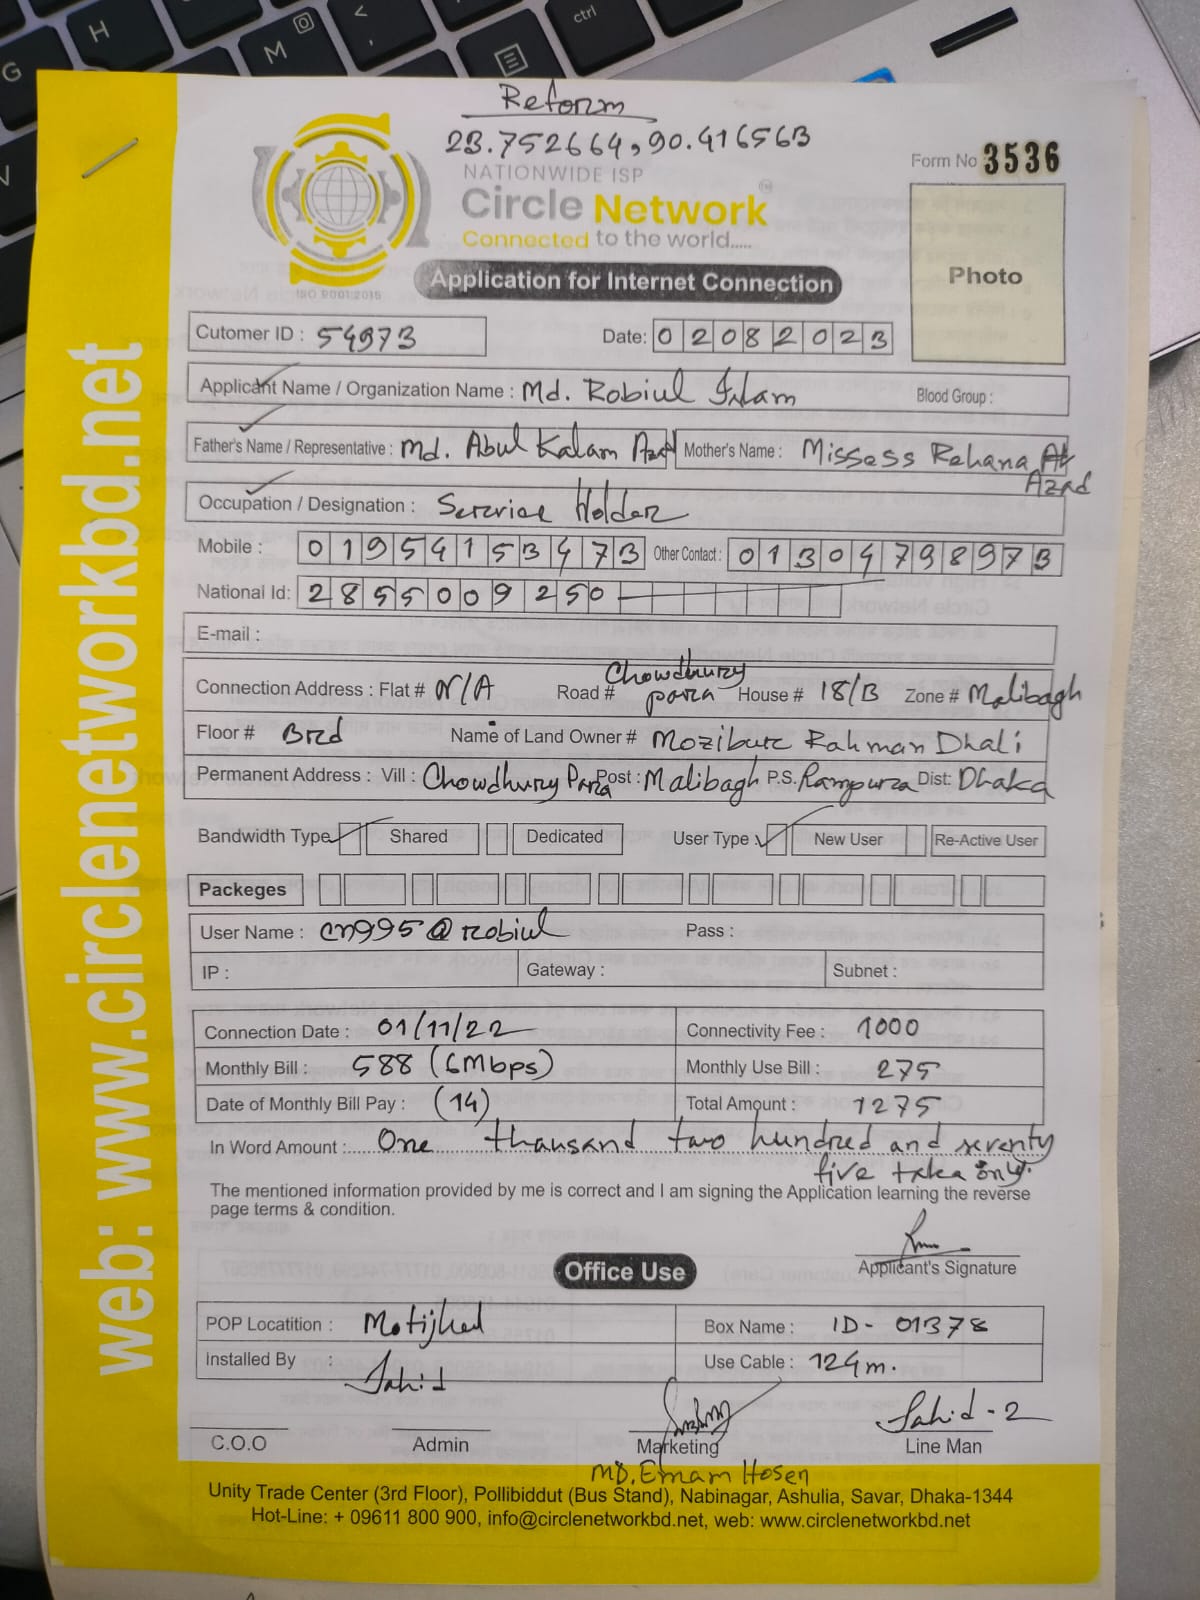 Reform
23.752664,90.416563
NATIONWIDE ISP
Circle Network
Connected to the world.....
ISO 9001:2015
Form No 3536
Photo
Application for Internet Connection
Cutomer ID : 54973
Date: 02082023
Applicant Name / Organization Name : Md. Robiul Islam
Blood Group :
Father's Name / Representative : Md. Abul Kalam Azad
Mother's Name : Missess Rehana
Azad
Occupation / Designation : Service Holder
Mobile : 01954153473 Other Contact : 01304798973
National Id: 2855009250
E-mail :
Connection Address : Flat # N/A Road # Chowdhury para House # 18/B Zone # Malibagh
Floor # 3rd Name of Land Owner # Mozibur Rahman Dhali
Permanent Address : Vill : Chowdhury Para Post : Malibagh P.S. Rampura Dist: Dhaka
Bandwidth Type Shared Dedicated User Type : New User Re-Active User
Packeges
User Name : cn995@robiul Pass :
IP : Gateway : Subnet :
Connection Date : 01/11/22 Connectivity Fee : 1000
Monthly Bill : 588 (6Mbps) Monthly Use Bill : 275
Date of Monthly Bill Pay : (14) Total Amount : 1275
In Word Amount :..... One thausand two hundred and seventy
five taka only.
The mentioned information provided by me is correct and I am signing the Application learning the reverse
page terms & condition.
Applicant's Signature
Office Use
POP Locatition : Motijheel Box Name : ID- 01378
Installed By : Sahid Use Cable : 124m.
Sahid - 2
C.O.O Admin Marketing Line Man
MD. Emam Hosen
Unity Trade Center (3rd Floor), Pollibiddut (Bus Stand), Nabinagar, Ashulia, Savar, Dhaka-1344
Hot-Line: + 09611 800 900, info@circlenetworkbd.net, web: www.circlenetworkbd.net
web: www.circlenetworkbd.net
G
H
M
<
,
ctrl